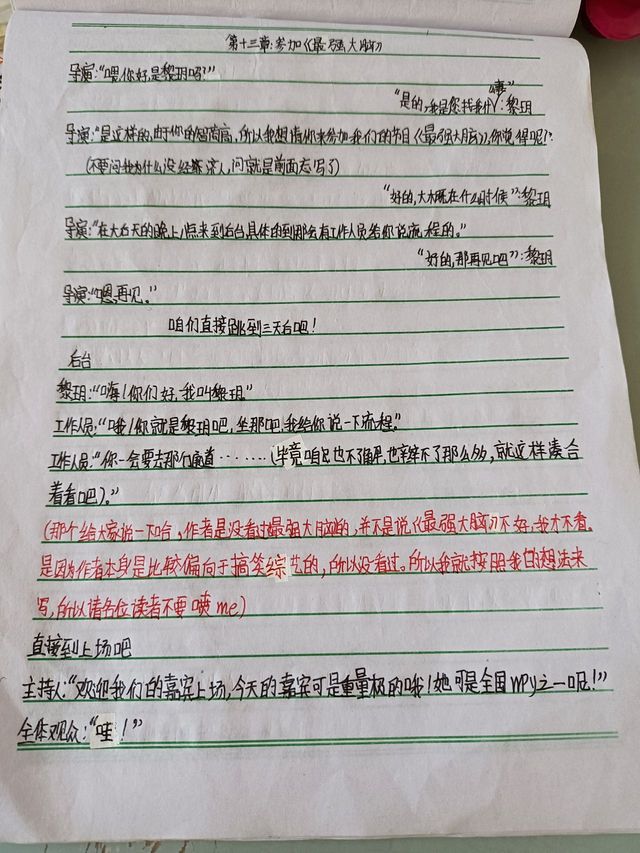 第十三章:参加《最强大脑》
导演:“喂,你好,是黎玥吗?”
“是的,我是,您找我什么事”:黎玥
导演:“是这样的,由于你的智商高,所以我想请你来参加我们的节目《最强大脑》,你觉得呢!”
(不要问我为什么没经纪人,问就是前面忘写了)
“好的,大概在什么时候”:黎玥
导演:“在大后天的晚上八点来到后台,具体的到那会有工作人员给你说流程的。”
“好的,那再见吧”:黎玥
导演:“嗯,再见。”
咱们直接跳到三天后吧!
后台
黎玥:“嗨!你们好,我叫黎玥.”
工作人员:“哦!你就是黎玥吧,坐那吧,我给你说一下流程.”
工作人员:“你一会要去那个通道……(毕竟咱也不了解,也编不了那么多,就这样凑合
着看吧)。”
(那个给大家说一下哈,作者是没看过最强大脑的,并不是说《最强大脑》不好,我才不看.
是因为作者本身是比较偏向于搞笑综艺的,所以没看过。所以我就按照我的想法来
写,所以请各位读者不要喷me)
直接到上场吧
主持人:“欢迎我们的嘉宾上场,今天的嘉宾可是重量极的哦!她可是全国mpy之一呢!”
全体观众:“哇!”